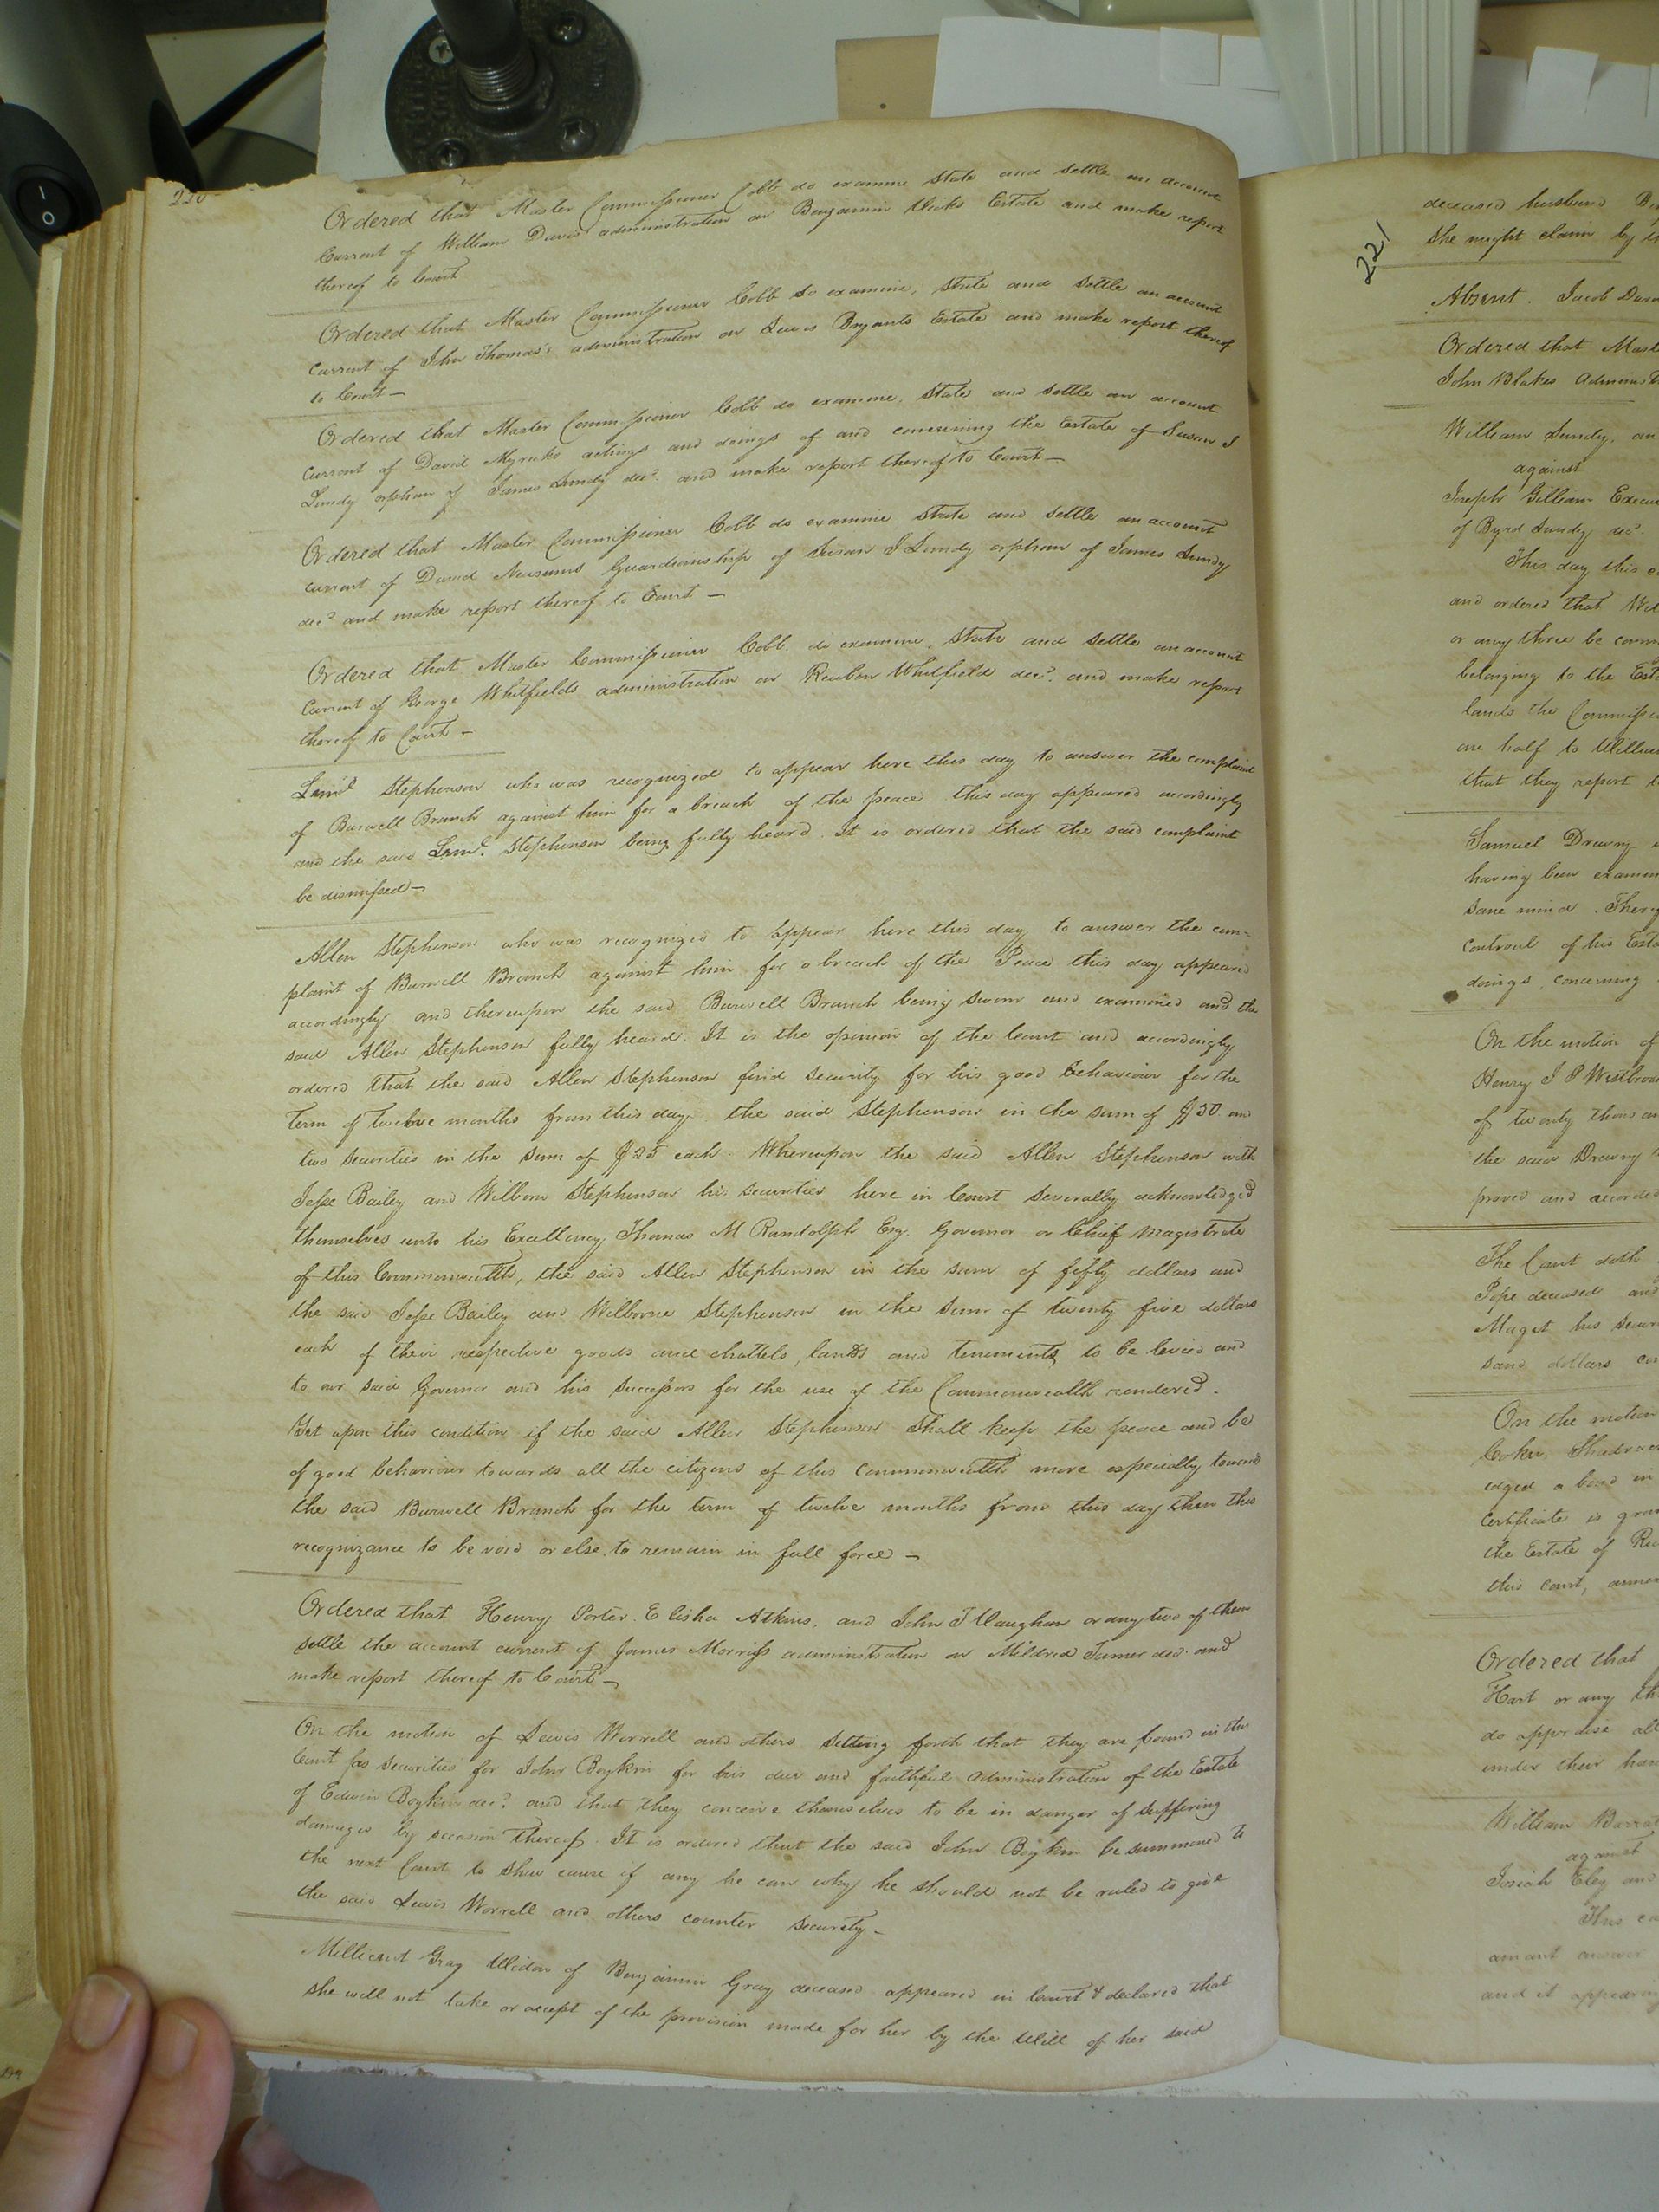 220
Ordered that Master Commissioner Cobb do examine State and settle an account
Current of William Davis' administration on Benjamin Weeks Estate and make report
thereof to Court
Ordered that Master Commissioner Cobb do examine, State and Settle an account
current of John Thomas's administration on Lewis Bryants Estate and make report thereof
to Court —
Ordered that Master Commissioner Cobb do examine, State and settle an account
current of David Myricks actings and doings of and concerning the Estate of Susan J
Lundy orphan of James Lundy decd. and make report thereof to Court —
Ordered that Master Commissioner Cobb do examine State and settle an account
current of David Newsums Guardianship of Susan J Lundy orphan of James Lundy
decd and make report thereof to Court —
Ordered that Master Commissioner Cobb. do examine, State and settle an account
Current of George Whitfields administration on Reuben Whitfield decd. and make report
thereof to Court —
Stephenson who was recognized to appear here this day to answer the complaint
of Burwell Branch against him for a breach of the peace this day appeared accordingly
and the said Stephenson being fully heard. It is ordered that the said complaint
be dismissed —
Allen Stephenson who was recognized to appear here this day to answer the com=
plaint of Burwell Branch against him for a breach of the Peace this day appeared
accordingly and thereupon the said Burwell Branch being sworn and examined and the
said Allen Stephenson fully heard. It is the opinion of the Court and accordingly
ordered that the said Allen Stephenson find Security for his good behaviour for the
term of twelve months from this day. the said Stephenson in the sum of $50. and
two securities in the sum of $25 each. Whereupon the said Allen Stephenson with
Jesse Bailey and Wilborn Stephenson his securities here in Court severally acknowledged
themselves unto his Excellency Thomas M Randolph Esq. Governor or Chief Magistrate
of this Commonwealth, the said Allen Stephenson in the sum of fifty dollars and
the said Jesse Bailey and Wilborne Stephenson in the Sum of twenty five dollars
each of their respective goods and chattels, lands and tenements to be levied and
to our said Governor and his Successors for the use of the Commonwealth rendered.
Yet upon this condition if the said Allen Stephenson shall keep the peace and be
of good behaviour towards all the citizens of this Commonwealth more especially towards
the said Burwell Branch for the term of twelve months from this day then this
recognizance to be void or else to remain in full force —
Ordered that Henry Porter. Elisha Atkins, and John T Vaughan or any two of them
settle the account current of James Morriss administration on Mildred Turner decd. and
make report thereof to Court —
On the motion of Lewis Worrell and others setting forth that they are bound in this
Court as Securities for John Boykin for his due and faithful administration of the Estate
of Edwin Boykin decd. and that they conceive themselves to be in danger of suffering
damages by occasion thereof. It is ordered that the said John Boykin be summoned to
the next Court to shew cause if any he can why he should not be ruled to give
the said Lewis Worrell and others counter security —
Millicent Gray Widow of Benjamin Gray deceased appeared in Court & declared that
she will not take or accept of the provision made for her by the Will of her said
221
deceased husband
she might claim by
Absent. Jacob
Ordered that
John Blakes
William Lundy,
against
Joseph Gilliam
of Byrd Lundy decd.
This day this
and ordered that
or any three be
belonging to the
lands the
one half to
that they report
Samuel Drewry
having been
Sane mind.
Controul of his
doings, concerning
On the motion of
Henry J P
of twenty
the said Drewry
proved and
The Court doth
Pope deceased and
Maget his
sand dollars
On the motion
Coker,
edged a bond in
certificate is
the Estate of
this Court,
Ordered that
Hart or any
do appraise all
under their
William
against
Josiah Eley and
This
amant answer
and it appearing